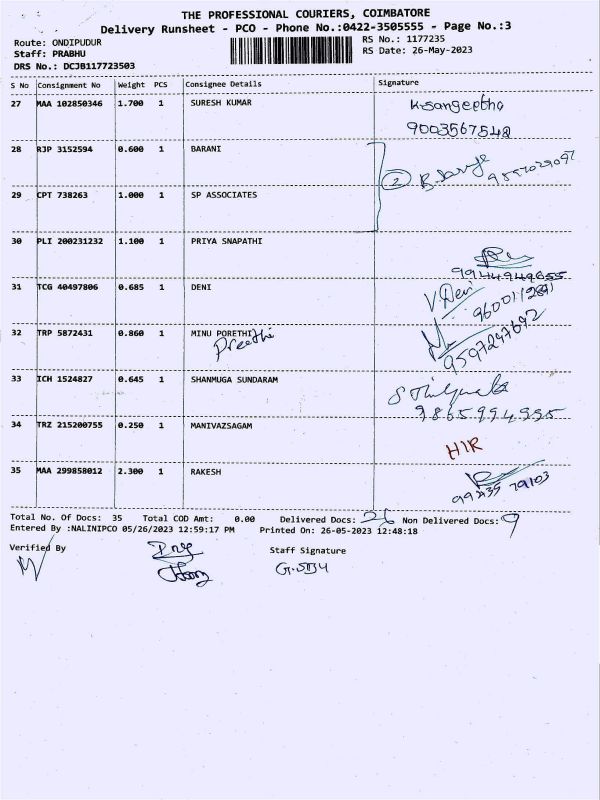 THE PROFESSIONAL COURIERS, COIMBATORE
Delivery Runsheet - PCO - Phone No.:0422-3505555 - Page No.:3
Route: ONDIPUDUR
RS No.: 1177235
Staff: PRABHU
RS Date: 26-May-2023
DRS No.: DCJB117723503
S No Consignment No Weight PCS Consignee Details Signature
27 MAA 102850346 1.700 1 SURESH KUMAR K.sangeetha
9003567542
28 RJP 3152594 0.600 1 BARANI
2
29 CPT 738263 1.000 1 SP ASSOCIATES
30 PLI 200231232 1.100 1 PRIYA SNAPATHI
9944949655
31 TCG 40497806 0.685 1 DENI V.Devi
32 TRP 5872431 0.860 1 MINU PORETHI
Preethi
9597247692
33 ICH 1524827 0.645 1 SHANMUGA SUNDARAM
9865994995
34 TRZ 215200755 0.250 1 MANIVAZSAGAM HIR
35 MAA 299858012 2.300 1 RAKESH
99435 79103
Total No. Of Docs: 35 Total COD Amt: 0.00 Delivered Docs: 26 Non Delivered Docs: 9
Entered By :NALINIPCO 05/26/2023 12:59:17 PM Printed On: 26-05-2023 12:48:18
Verified By Staff Signature